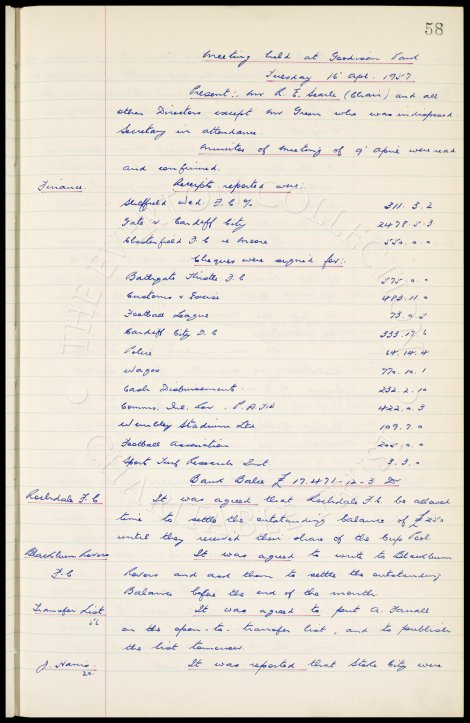 58
Meeting held at Goodison Park
Tuesday 16 Apl. 1957
Present:- Mr R. E. Searle (Chair) and all
other Directors except Mr Green who was indisposed.
Secretary in attendance.
Minutes of meeting of 9 April were read
and confirmed.
Finance. Receipts reported were:
Sheffield Wed. F.C. 311. 3. 2
Gate v. Cardiff City 2478. 5. 3
Chesterfield F.C. re Moore 550. 0. 0
Cheques were signed for:-
Bathgate Thistle F.C 575. 0. 0
Customs & Excise 483. 11. 0
Football League 73. 0. 5
Cardiff City F.C 333. 17. 6
Police 64. 14. 4
Wages 770. 10. 1
Cash Disbursements. 232. 2. 10
Comms. Inl. Rev. 422. 0. 3
Wembley Stadium Ltd 109. 7. 0
Football Association 205. 10. 0
Sport Turf Research Inst. 3. 3. 0
Bank Balce £ 17.471-12-3
Rochdale F.C It was agreed that Rochdale F.C. be allowed
time to settle the outstanding balance of £250
until they received their share of the Cup Pool.
Blackburn Rovers It was agreed to write to Blackburn
F.C Rovers and ask them to settle the outstanding
Balance before the end of the month.
Transfer List It was agreed to put A. Farrall
56 on the open-to-transfer list, and to publish
the list tomorrow.
J. Harris. It was reported that Stoke City were
20.
THE EVERTON COLLECTION
CHARITABLE TRUST